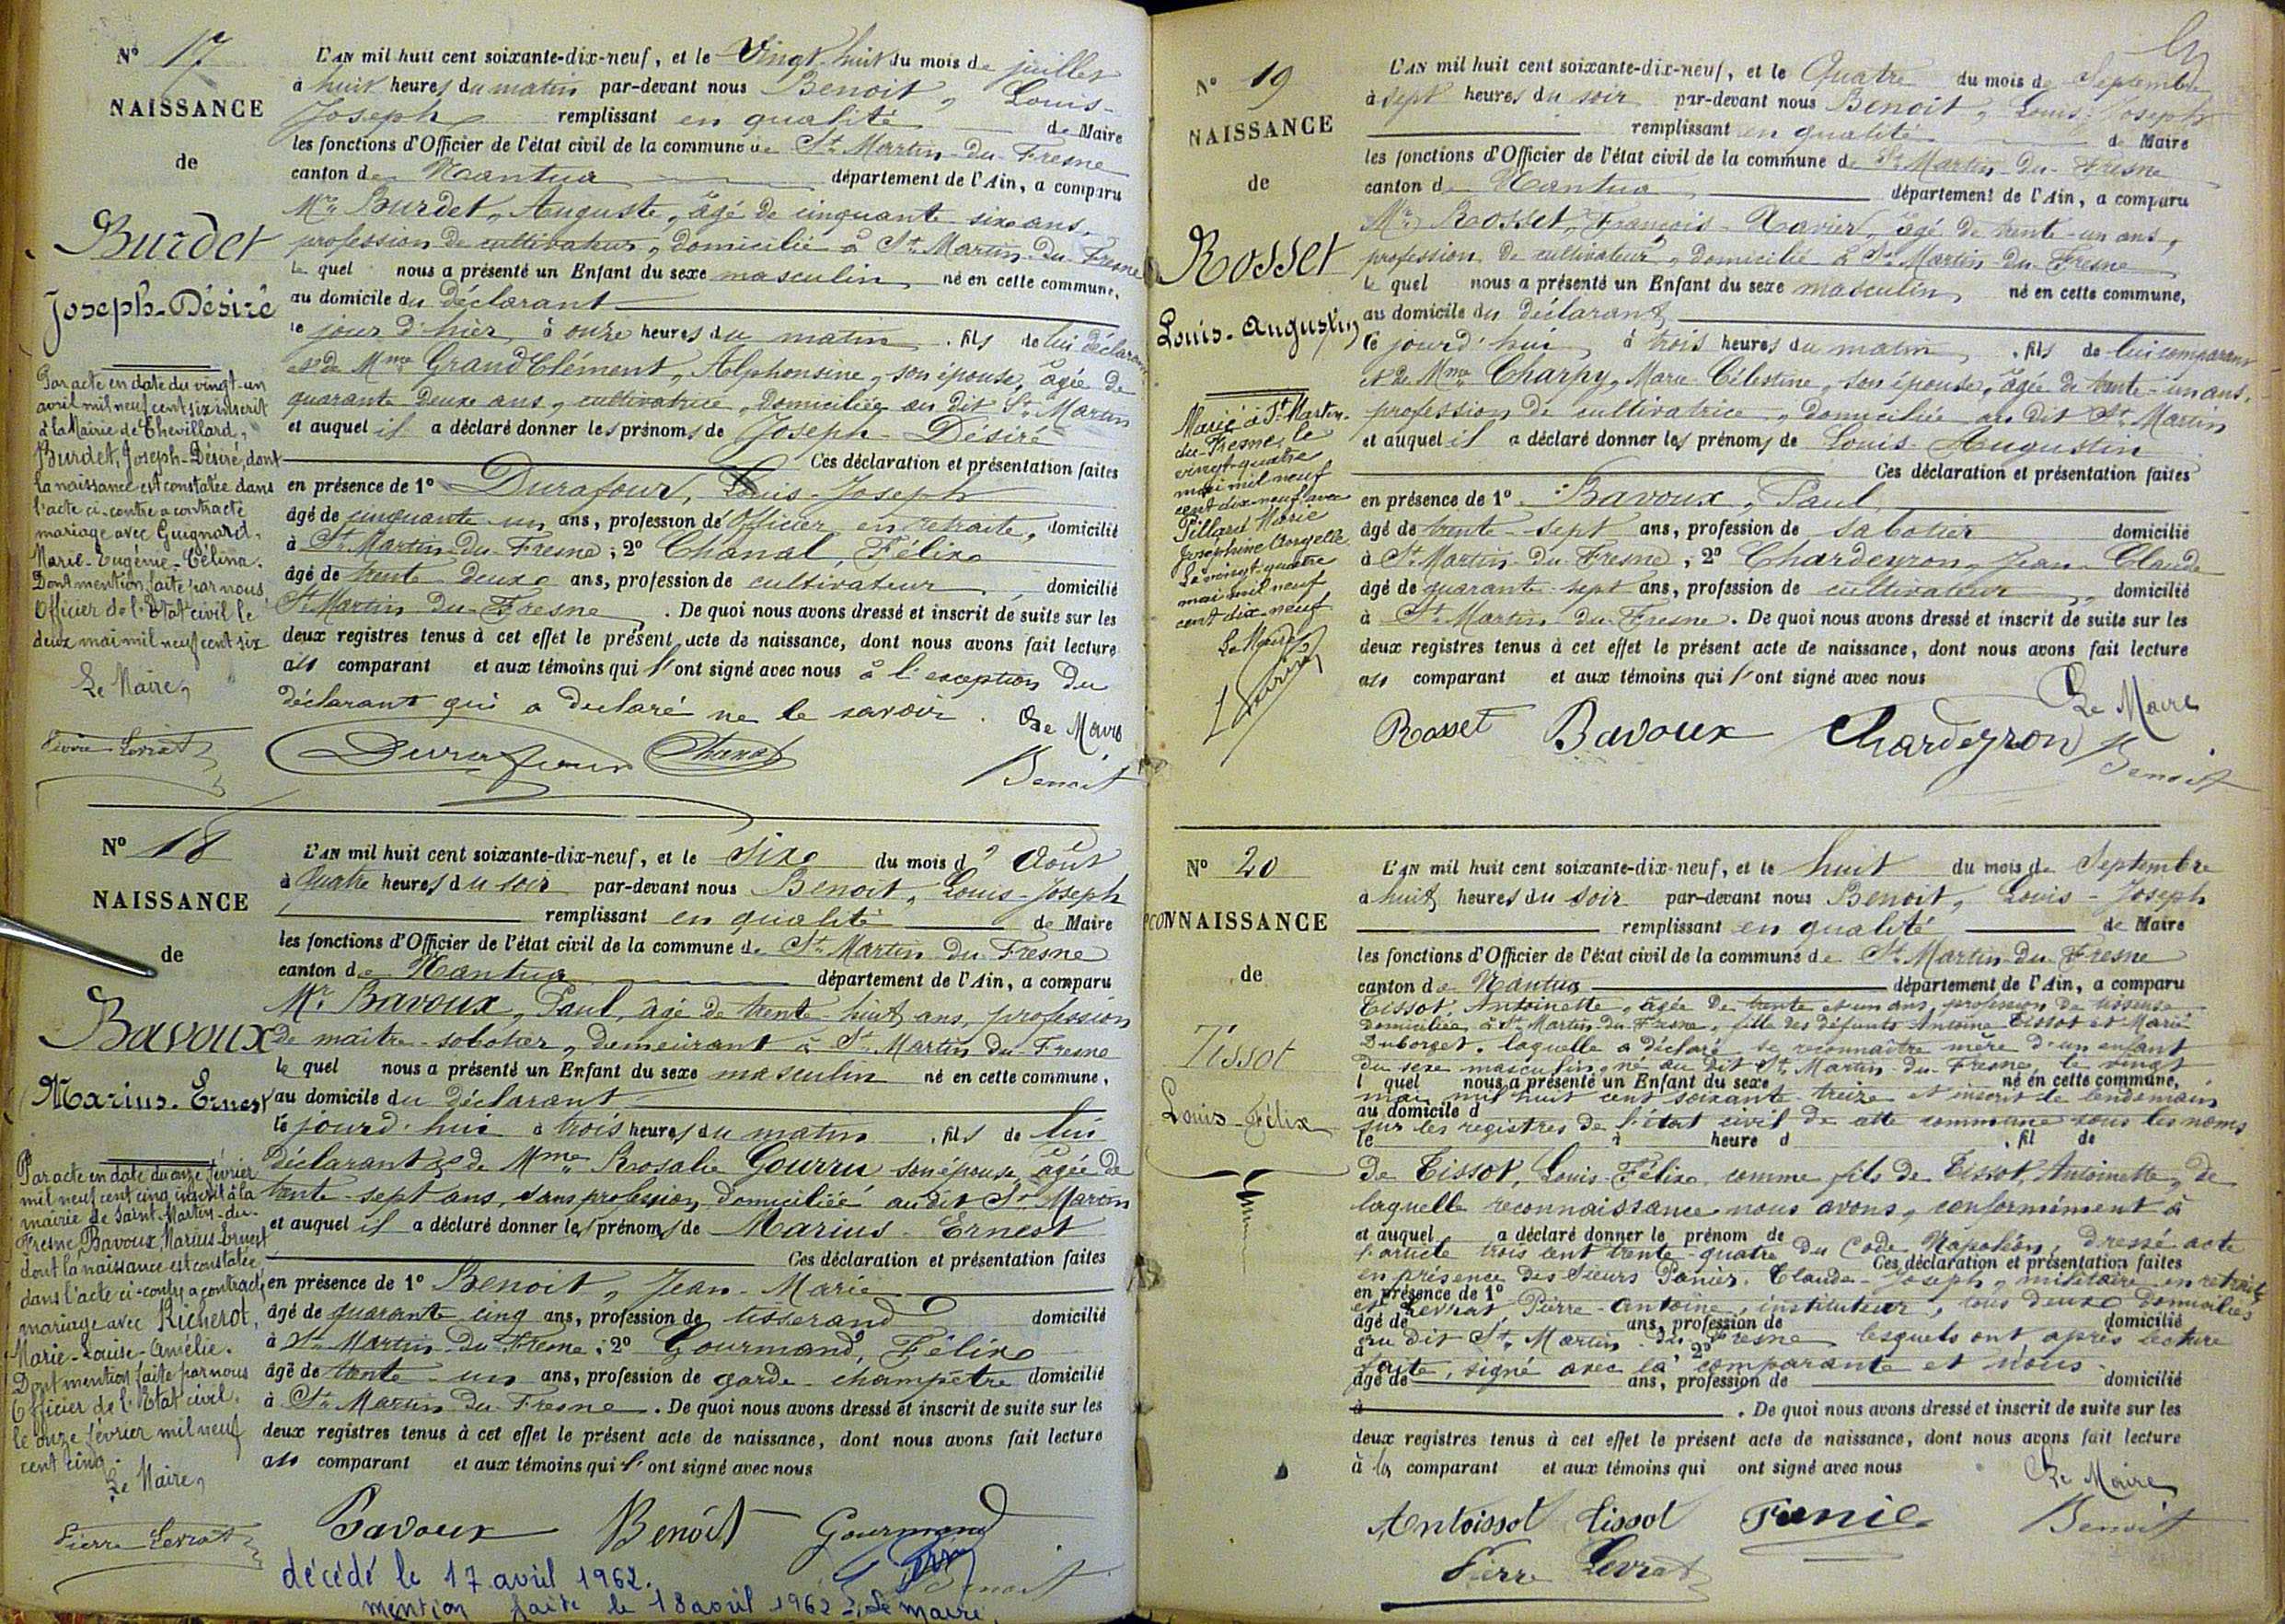 N° 17
NAISSANCE
de
Burdet
Joseph-Désiré
Par acte en date du vingt-un
avril mil neuf cent six inscrit
à la Mairie de Chevillard,
Burdet, Joseph-Désiré, dont
la naissance est constatée dans
l'acte ci-contre a contracté
mariage avec Guignard,
Marie-Eugénie-Célina.
Dont mention faite par nous
Officier de l'Etat civil le
deux mai mil neuf cent six
Le Maire,
Pierre Levrat
L'AN mil huit cent soixante-dix-neuf, et le Vingt-huit du mois de juillet
à huit heures du matin par-devant nous Benoit, Louis-
Joseph remplissant en qualité de Maire
les fonctions d'Officier de l'état civil de la commune de St Martin-du-Fresne
canton de Nantua département de l'Ain, a comparu
Mr Burdet, Auguste, âgé de cinquante-six ans,
profession de cultivateur, domicilié à St Martin-du-Fresne
le quel nous a présenté un Enfant du sexe masculin, né en cette commune,
au domicile du déclarant
le jour d'hier, à onze heures du matin, fils de lui déclarant
et de Mme GrandClément, Alphonsine, son épouse, âgée de
quarante deux ans, cultivatrice, domiciliée au dit St Martin
et auquel il a déclaré donner les prénoms de Joseph-Désiré
Ces déclaration et présentation faites
en présence de 1° Durafour, Louis-Joseph
âgé de cinquante-un ans, profession de Officier en retraite, domicilié
à St Martin-du-Fresne ; 2° Chanal, Félix
âgé de trente deux ans, profession de cultivateur, domicilié
St Martin-du-Fresne. De quoi nous avons dressé et inscrit de suite sur les
deux registres tenus à cet effet le présent acte de naissance, dont nous avons fait lecture
au comparant et aux témoins qui l'ont signé avec nous à l'exception du
déclarant qui a déclaré ne le savoir. Le Maire
Durafour Chanal Benoit
N° 18
NAISSANCE
de
Bavoux
Marius-Ernest
Par acte en date du onze février
mil neuf cent cinq inscrit à la
mairie de Saint-Martin-du-
Fresne, Bavoux, Marius Ernest
dont la naissance est constatée
dans l'acte ci-contre a contracté
mariage avec Richerot,
Marie-Louise-Amélie.
Dont mention faite par nous
Officier de l'Etat civil,
le onze février mil neuf
cent cinq.
Le Maire,
Pierre Levrat
L'AN mil huit cent soixante-dix-neuf, et le six du mois d' Août
à Quatre heures du soir par-devant nous Benoit, Louis-Joseph
remplissant en qualité de Maire
les fonctions d'Officier de l'état civil de la commune de St Martin du Fresne
canton de Nantua département de l'Ain, a comparu
Mr Bavoux, Paul, âgé de trente-huit ans, profession
de maître-sabotier, demeurant à St Martin du Fresne
le quel nous a présenté un Enfant du sexe masculin né en cette commune,
au domicile du déclarant
le jourd'hui à trois heures du matin, fils de lui
déclarant et de Mme Rosalie Gourru son épouse, âgée de
trente-sept ans, sans profession, domiciliée au dit St Martin
et auquel il a déclaré donner les prénoms de Marius-Ernest
Ces déclaration et présentation faites
en présence de 1° Benoit, Jean-Marie
âgé de quarante cinq ans, profession de tisserand domicilié
à St Martin-du-Fresne ; 2° Gourmand, Félix
âgé de trente-un ans, profession de garde-champêtre domicilié
à St Martin du Fresne. De quoi nous avons dressé et inscrit de suite sur les
deux registres tenus à cet effet le présent acte de naissance, dont nous avons fait lecture
au comparant et aux témoins qui l'ont signé avec nous
Bavoux Benoit Gourmand
Benoit
décédé le 17 avril 1962.
mention faite le 18 avril 1962 Le maire.
N° 19
NAISSANCE
de
Rosset
Louis-Augustin
Marié à St Martin-
du-Fresne, le
vingt-quatre
mai mil neuf
cent dix-neuf avec
Pillard Marie
Joséphine Angelle
Le vingt-quatre
mai mil neuf
cent dix-neuf
Le Maire
L'AN mil huit cent soixante-dix-neuf, et le Quatre du mois de Septembre
à sept heures du soir par-devant nous Benoit, Louis-Joseph
remplissant en qualité de Maire
les fonctions d'Officier de l'état civil de la commune de St Martin-du-Fresne
canton de Nantua département de l'Ain, a comparu
Mr Rosset, François-Xavier, âgé de trente-un ans,
profession de cultivateur, domicilié à St Martin-du-Fresne
le quel nous a présenté un Enfant du sexe masculin, né en cette commune,
au domicile du déclarant
le jourd'hui, à trois heures du matin, fils de lui comparant
et de Mme Charpy, Marie-Célestine, son épouse, âgée de trente-un ans,
profession de cultivatrice, domiciliée au dit St Martin
et auquel il a déclaré donner les prénoms de Louis-Augustin
Ces déclaration et présentation faites
en présence de 1° Bavoux, Paul
âgé de trente-sept ans, profession de sabotier domicilié
à St Martin du Fresne ; 2° Chardeyron, Jean-Claude
âgé de quarante-sept ans, profession de cultivateur, domicilié
à St Martin du Fresne. De quoi nous avons dressé et inscrit de suite sur les
deux registres tenus à cet effet le présent acte de naissance, dont nous avons fait lecture
au comparant et aux témoins qui l'ont signé avec nous
Le Maire
Rosset Bavoux Chardeyron Benoit
N° 20
RECONNAISSANCE
de
Tissot
Louis-Félix
L'AN mil huit cent soixante-dix-neuf, et le huit du mois de Septembre
à huit heures du soir par-devant nous Benoit, Louis-Joseph
remplissant en qualité de Maire
les fonctions d'Officier de l'état civil de la commune de St Martin-du-Fresne
canton de Nantua département de l'Ain, a comparu
Tissot, Antoinette, âgée de trente et un ans, profession de tisseuse
domiciliée à St Martin-du-Fresne, fille des défunts Antoine Tissot et Marie
Duborget, laquelle a déclaré se reconnaître mère d'un enfant
du sexe masculin, né au dit St Martin-du-Fresne, le vingt
l quel nous a présenté un Enfant du sexe né en cette commune,
mai mil huit cent soixante-treize et inscrit le lendemain
au domicile d
sur les registres de l'état civil de cette commune sous les noms
le à heure d , fil de
de Tissot, Louis-Félix, comme fils de Tissot, Antoinette, de
laquelle reconnaissance nous avons, conformément à
et auquel a déclaré donner le prénom de
l'article trois cent trente-quatre du Code Napoléon, dressé acte
Ces déclaration et présentation faites
en présence des Sieurs Panier, Claude-Joseph, militaire en retraite
en présence de 1°
et Levrat Pierre-Antoine, instituteur, tous deux domiciliés
âgé de ans, profession de domicilié
au dit St Martin-du-Fresne lesquels ont après lecture
à 2°
faite, signé avec la comparante et nous.
âgé de ans, profession de domicilié
à . De quoi nous avons dressé et inscrit de suite sur les
deux registres tenus à cet effet le présent acte de naissance, dont nous avons fait lecture
à la comparant et aux témoins qui ont signé avec nous
Le Maire
Antoissot Tissot Panie Benoit
Pierre Levrat